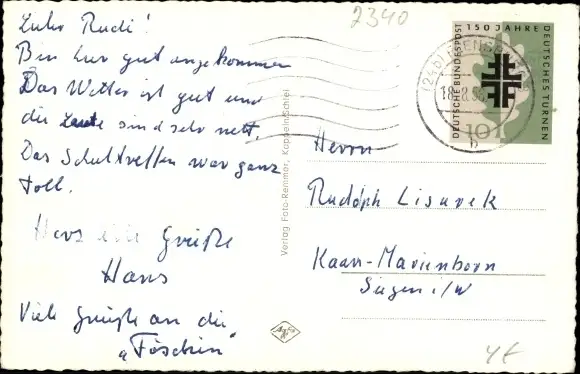 2340
Lieber Rudi!
Bin hier gut angekommen
Das Wetter ist gut und
die Leute sind sehr nett.
Das Schultreffen war ganz
toll.
Herzliche Grüße
Hans
Viele Grüße an die
"Föschin"
Verlag Foto-Remmer, Kappeln/Schlei
Agfa
150 JAHRE
DEUTSCHES TURNEN
DEUTSCHE BUNDESPOST
10
(24b)
18.8.58
b
Herrn
Rudolph Lisurek
Kaan-Marienborn
Siegen i/W
4€